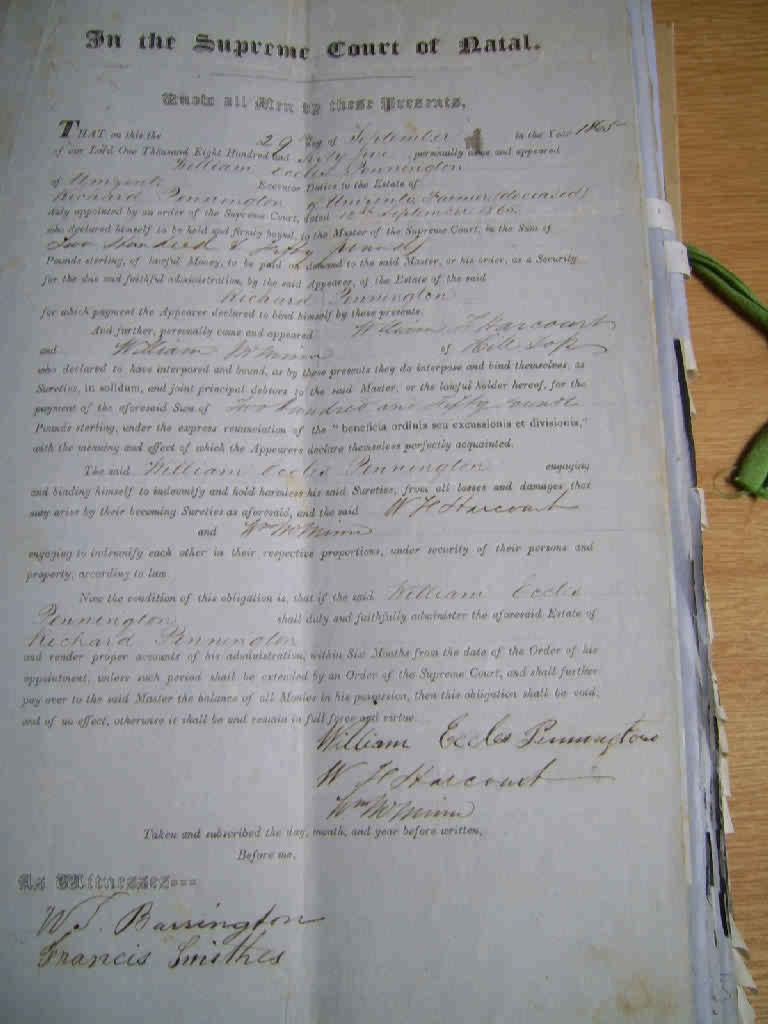 In the Supreme Court of Natal.
Know all Men by these Presents,
THAT on this the 29th day of September in the Year 1865
of our Lord One Thousand Eight Hundred and Sixty five personally came and appeared
William Eccles Pennington
of Umzinto Executor Dative to the Estate of
Richard Pennington of Umzinto Farmer (deceased)
duly appointed by an order of the Supreme Court, dated September 1865
who declared himself to be held and firmly bound, to the Master of the Supreme Court, in the Sum of
Two Hundred & Fifty pounds
Pounds sterling, of lawful Money, to be paid on demand to the said Master, or his order, as a Security
for the due and faithful administration, by the said Appearer, of the Estate of the said
Richard Pennington
for which payment the Appearer declared to bind himself by these presents.
And further, personally came and appeared William H Harcourt
and William McMinn of Hill Top
who declared to have interposed and bound, as by these presents they do interpose and bind themselves, as
Sureties, in solidum, and joint principal debtors to the said Master, or the lawful holder hereof, for the
payment of the aforesaid Sum of Two hundred and Fifty Pounds
Pounds sterling, under the express renunciation of the "beneficia ordinis seu excussionis et divisionis,"
with the meaning and effect of which the Appearers declare themselves perfectly acquainted.
The said William Eccles Pennington engaging
and binding himself to indemnify and hold harmless his said Sureties, from all losses and damages that
may arise by their becoming Sureties as aforesaid, and the said W H Harcourt
and Wm McMinn
engaging to indemnify each other in their respective proportions, under security of their persons and
property, according to law.
Now the condition of this obligation is, that if the said William Eccles
Pennington shall duly and faithfully administer the aforesaid Estate of
Richard Pennington
and render proper accounts of his administration, within Six Months from the date of the Order of his
appointment, unless such period shall be extended by an Order of the Supreme Court, and shall further
pay over to the said Master the balance of all Monies in his possession, then this obligation shall be void,
and of no effect, otherwise it shall be and remain in full force and virtue.
William Eccles Pennington
W H Harcourt
Wm McMinn
Taken and subscribed the day, month, and year before written,
Before me,
As Witnesses---
W. J. Barrington
Francis Smithes